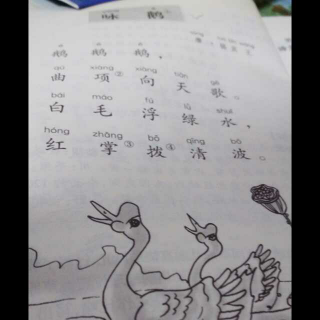 咏 鹅
é é é
鹅，鹅，鹅，
qū xiàng xiàng tiān gē
曲 项② 向 天 歌。
bái máo fú lǜ shuǐ
白 毛 浮 绿 水，
hóng zhǎng bō qīng bō
红 掌③ 拨④ 清 波。